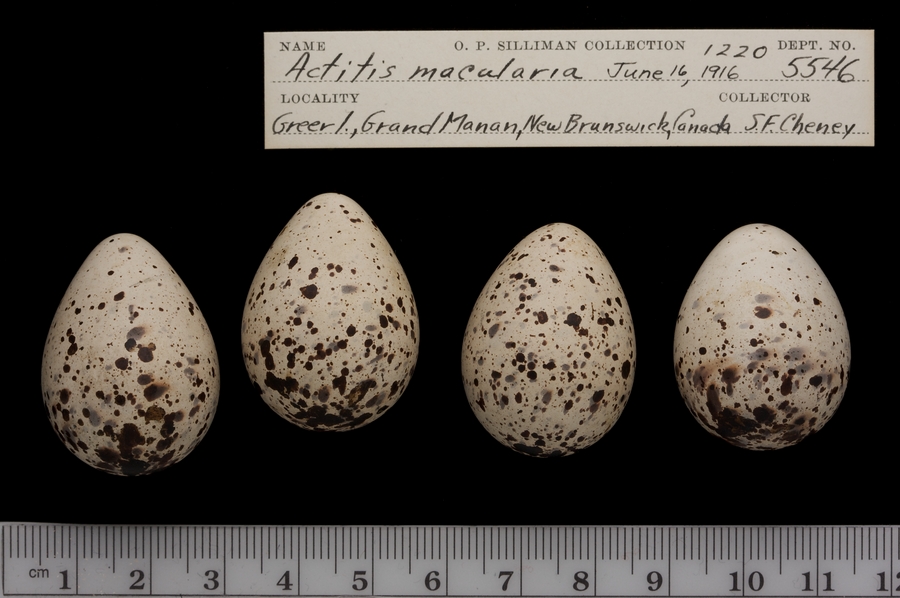 NAME O. P. SILLIMAN COLLECTION 1220 DEPT. NO.
Actitis macularia June 16, 1916 5546
LOCALITY COLLECTOR
Greer I., Grand Manan, New Brunswick, Canada S.F. Cheney
cm 1 2 3 4 5 6 7 8 9 10 11 12